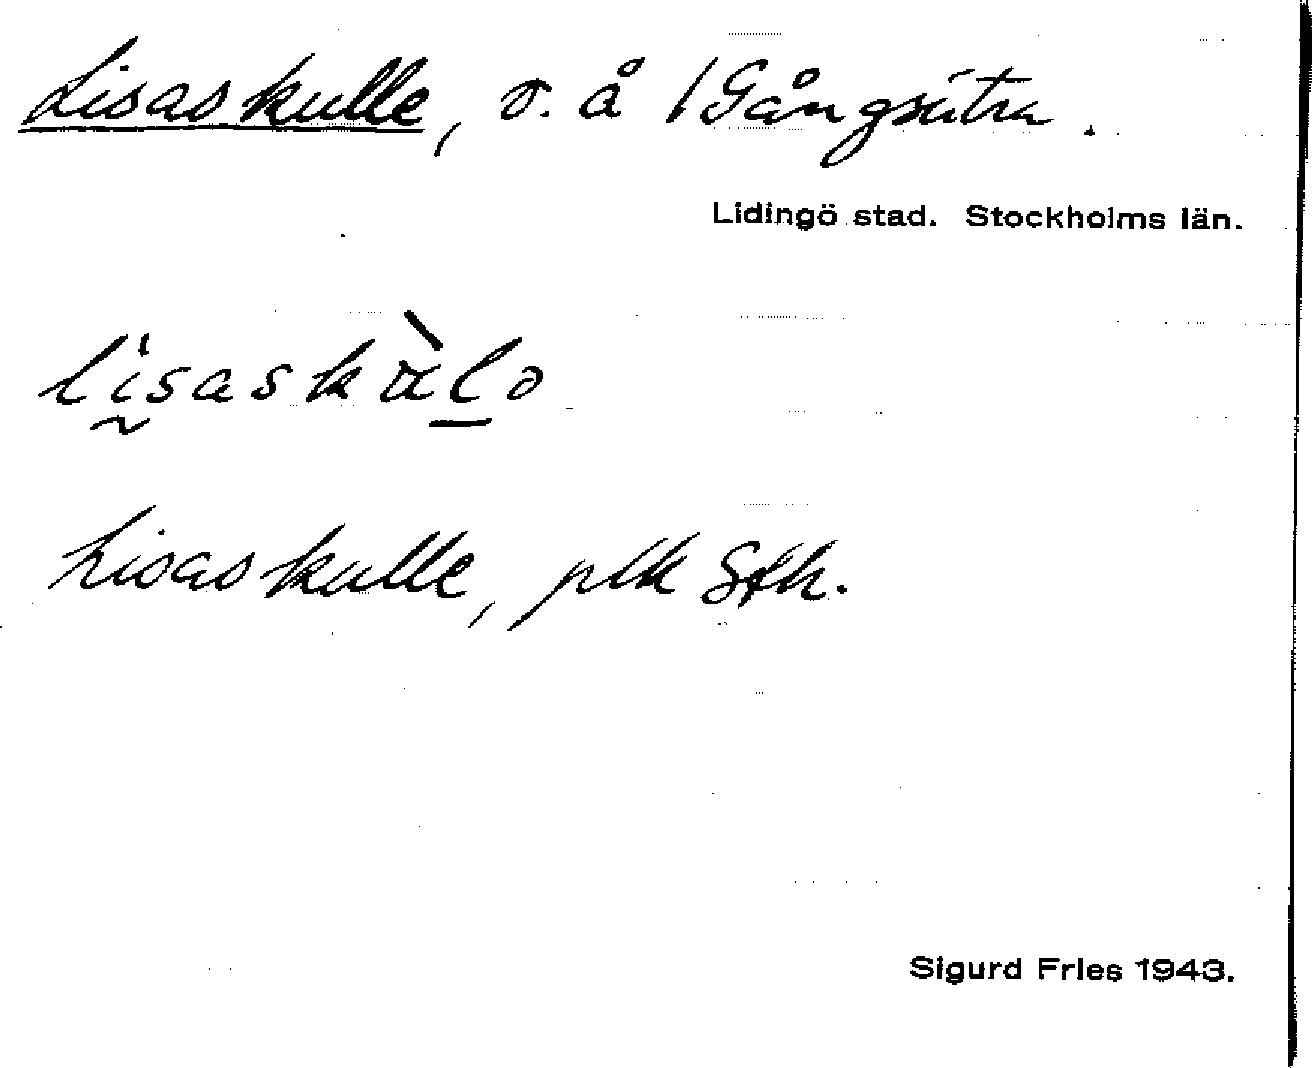 Lisaskulle, v. å 1 Gångsätra.
Lidingö stad. Stockholms län.
Lisaskulle, plk Sth.
Sigurd Fries 1943.